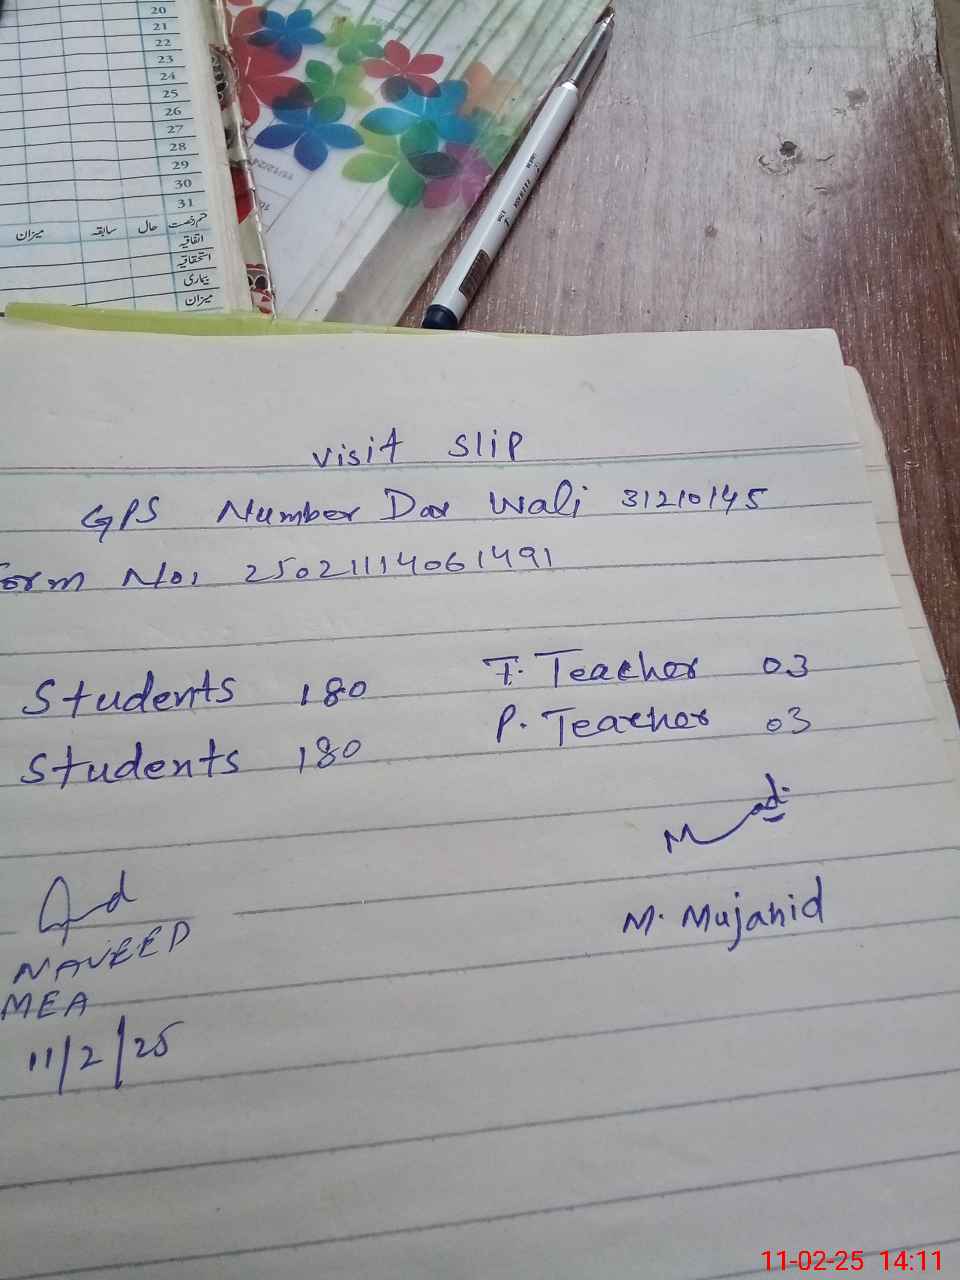 20
21
22
23
24
25
26
27
28
29
30
31
میزان سابقہ حال قسم رخصت
اتفاقیہ
استحقاقیہ
بیماری
میزان
Visit Slip
GPS Number Dar Wali 31210145
Form No: 25021114061491
Students 180 T. Teacher 03
Students 180 P. Teacher 03
M. Mujahid
NAVEED
MEA
11/2/25
11-02-25 14:11